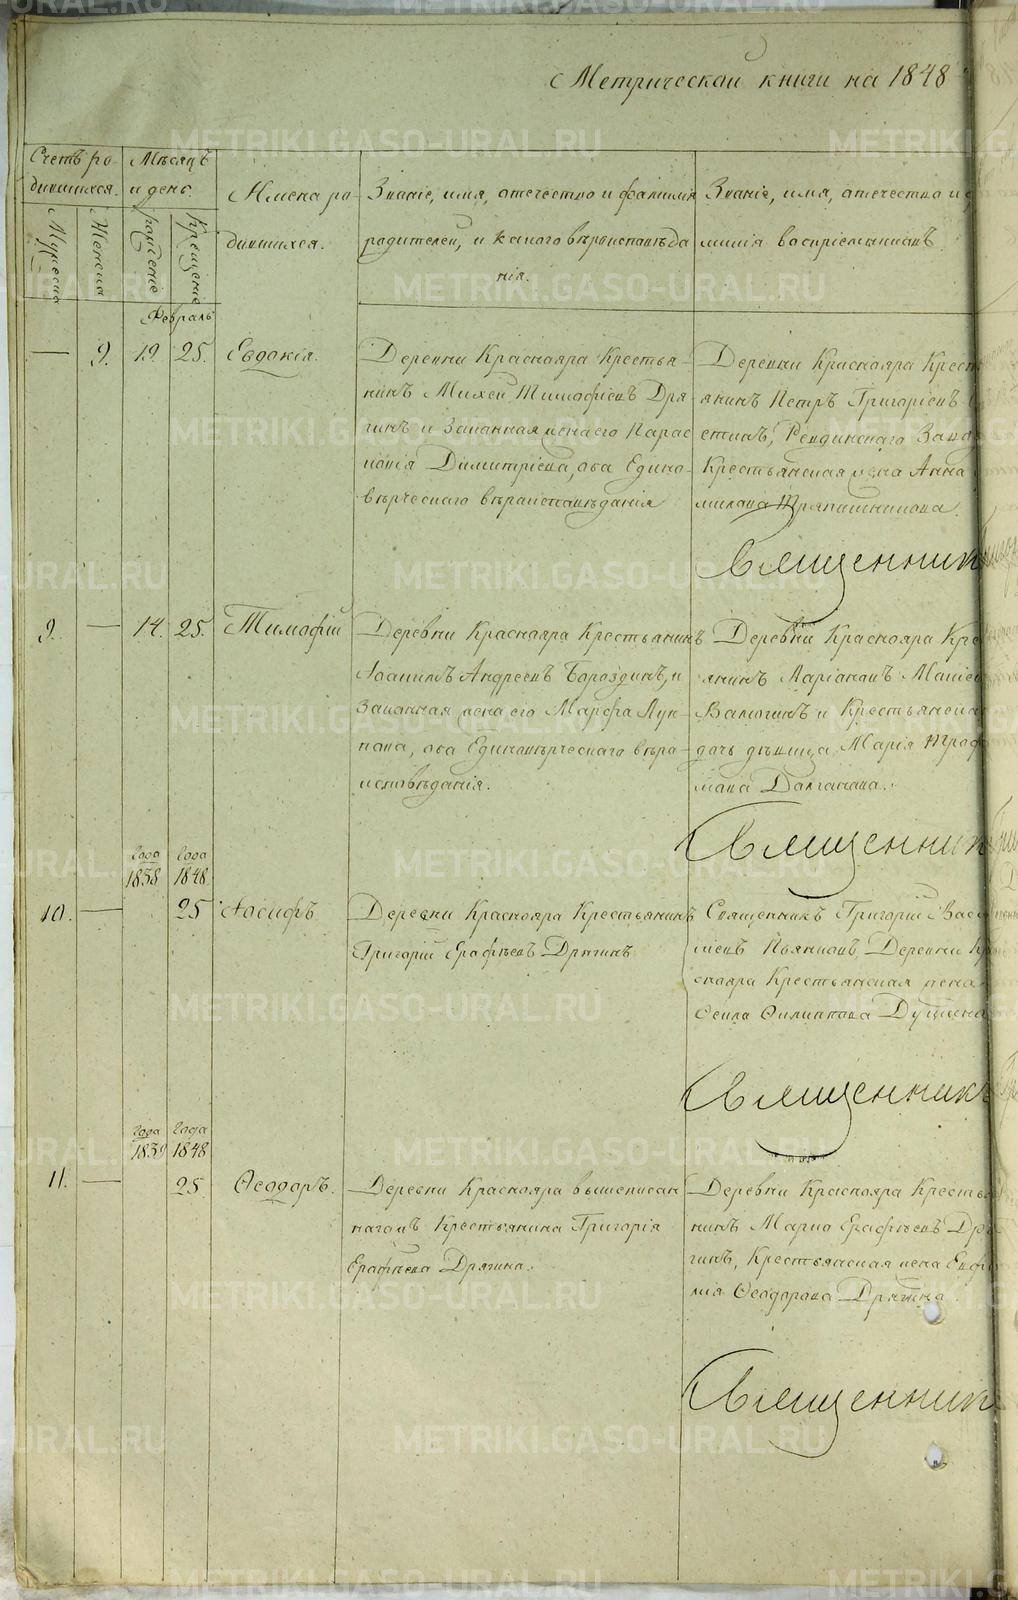 Метрической книги на 1848
Счетъ ро-
дившихся.
Мѣсяцъ
и день.
Имена ро
дившихся.
Званіе, имя, отечество и фамилія
родителей, и какого вѣроисповѣда
нія.
Званіе, имя, отечество и ф
милія воспріемниковъ
Мужеска
Женска
рожденіе
Крещеніе
Февраль
— 9. 19. 25. Евдокія.
Деревни Краснояра Крестья-
нинъ Михей Тимофѣевъ Дря
гинъ и Законная жена его Парас
ковія Димитріева, оба Едино-
вѣрческаго вѣроисповѣданія
Деревни Краснояра Крест
янинъ Петръ Григоріевъ
Ревдинскаго Завод
Крестьянская жена Анна
Тряпишникова.
Священник
9. — 14. 25. Тимофій
Деревни Краснояра Крестьянинъ
Іоаннъ Андреевъ Бороздинъ, и
Законная жена его Марфа Лук-
оба Единовѣрческаго вѣро-
исповѣданія.
Деревни Краснояра Кре
янинъ Ларіоновъ Моисе
и Крестьянска
дочь дѣвица Марія
Священник
года
1838
года
1848
10. — 25 Іосифъ
Деревни Краснояра Крестьянинъ
Григорій Ерафѣевъ Дрягинъ
Священникъ Григорій Васи
ліевъ Пьянковъ, Деревни Кра
снояра Крестьянская жена
Филипова
Священникъ
года
1839
года
1848
11. — 25 Феодоръ.
Деревни Краснояра вышеписан
наго Крестьянина Григорія
Ерафѣева Дрягина.
Деревни Краснояра Крестья
нинъ Марко Ерафѣевъ Дря
гинъ, Крестьянская жена Евфи
мія Феодорова Дрягина.
Священник
METRIKI.GASO-URAL.RU